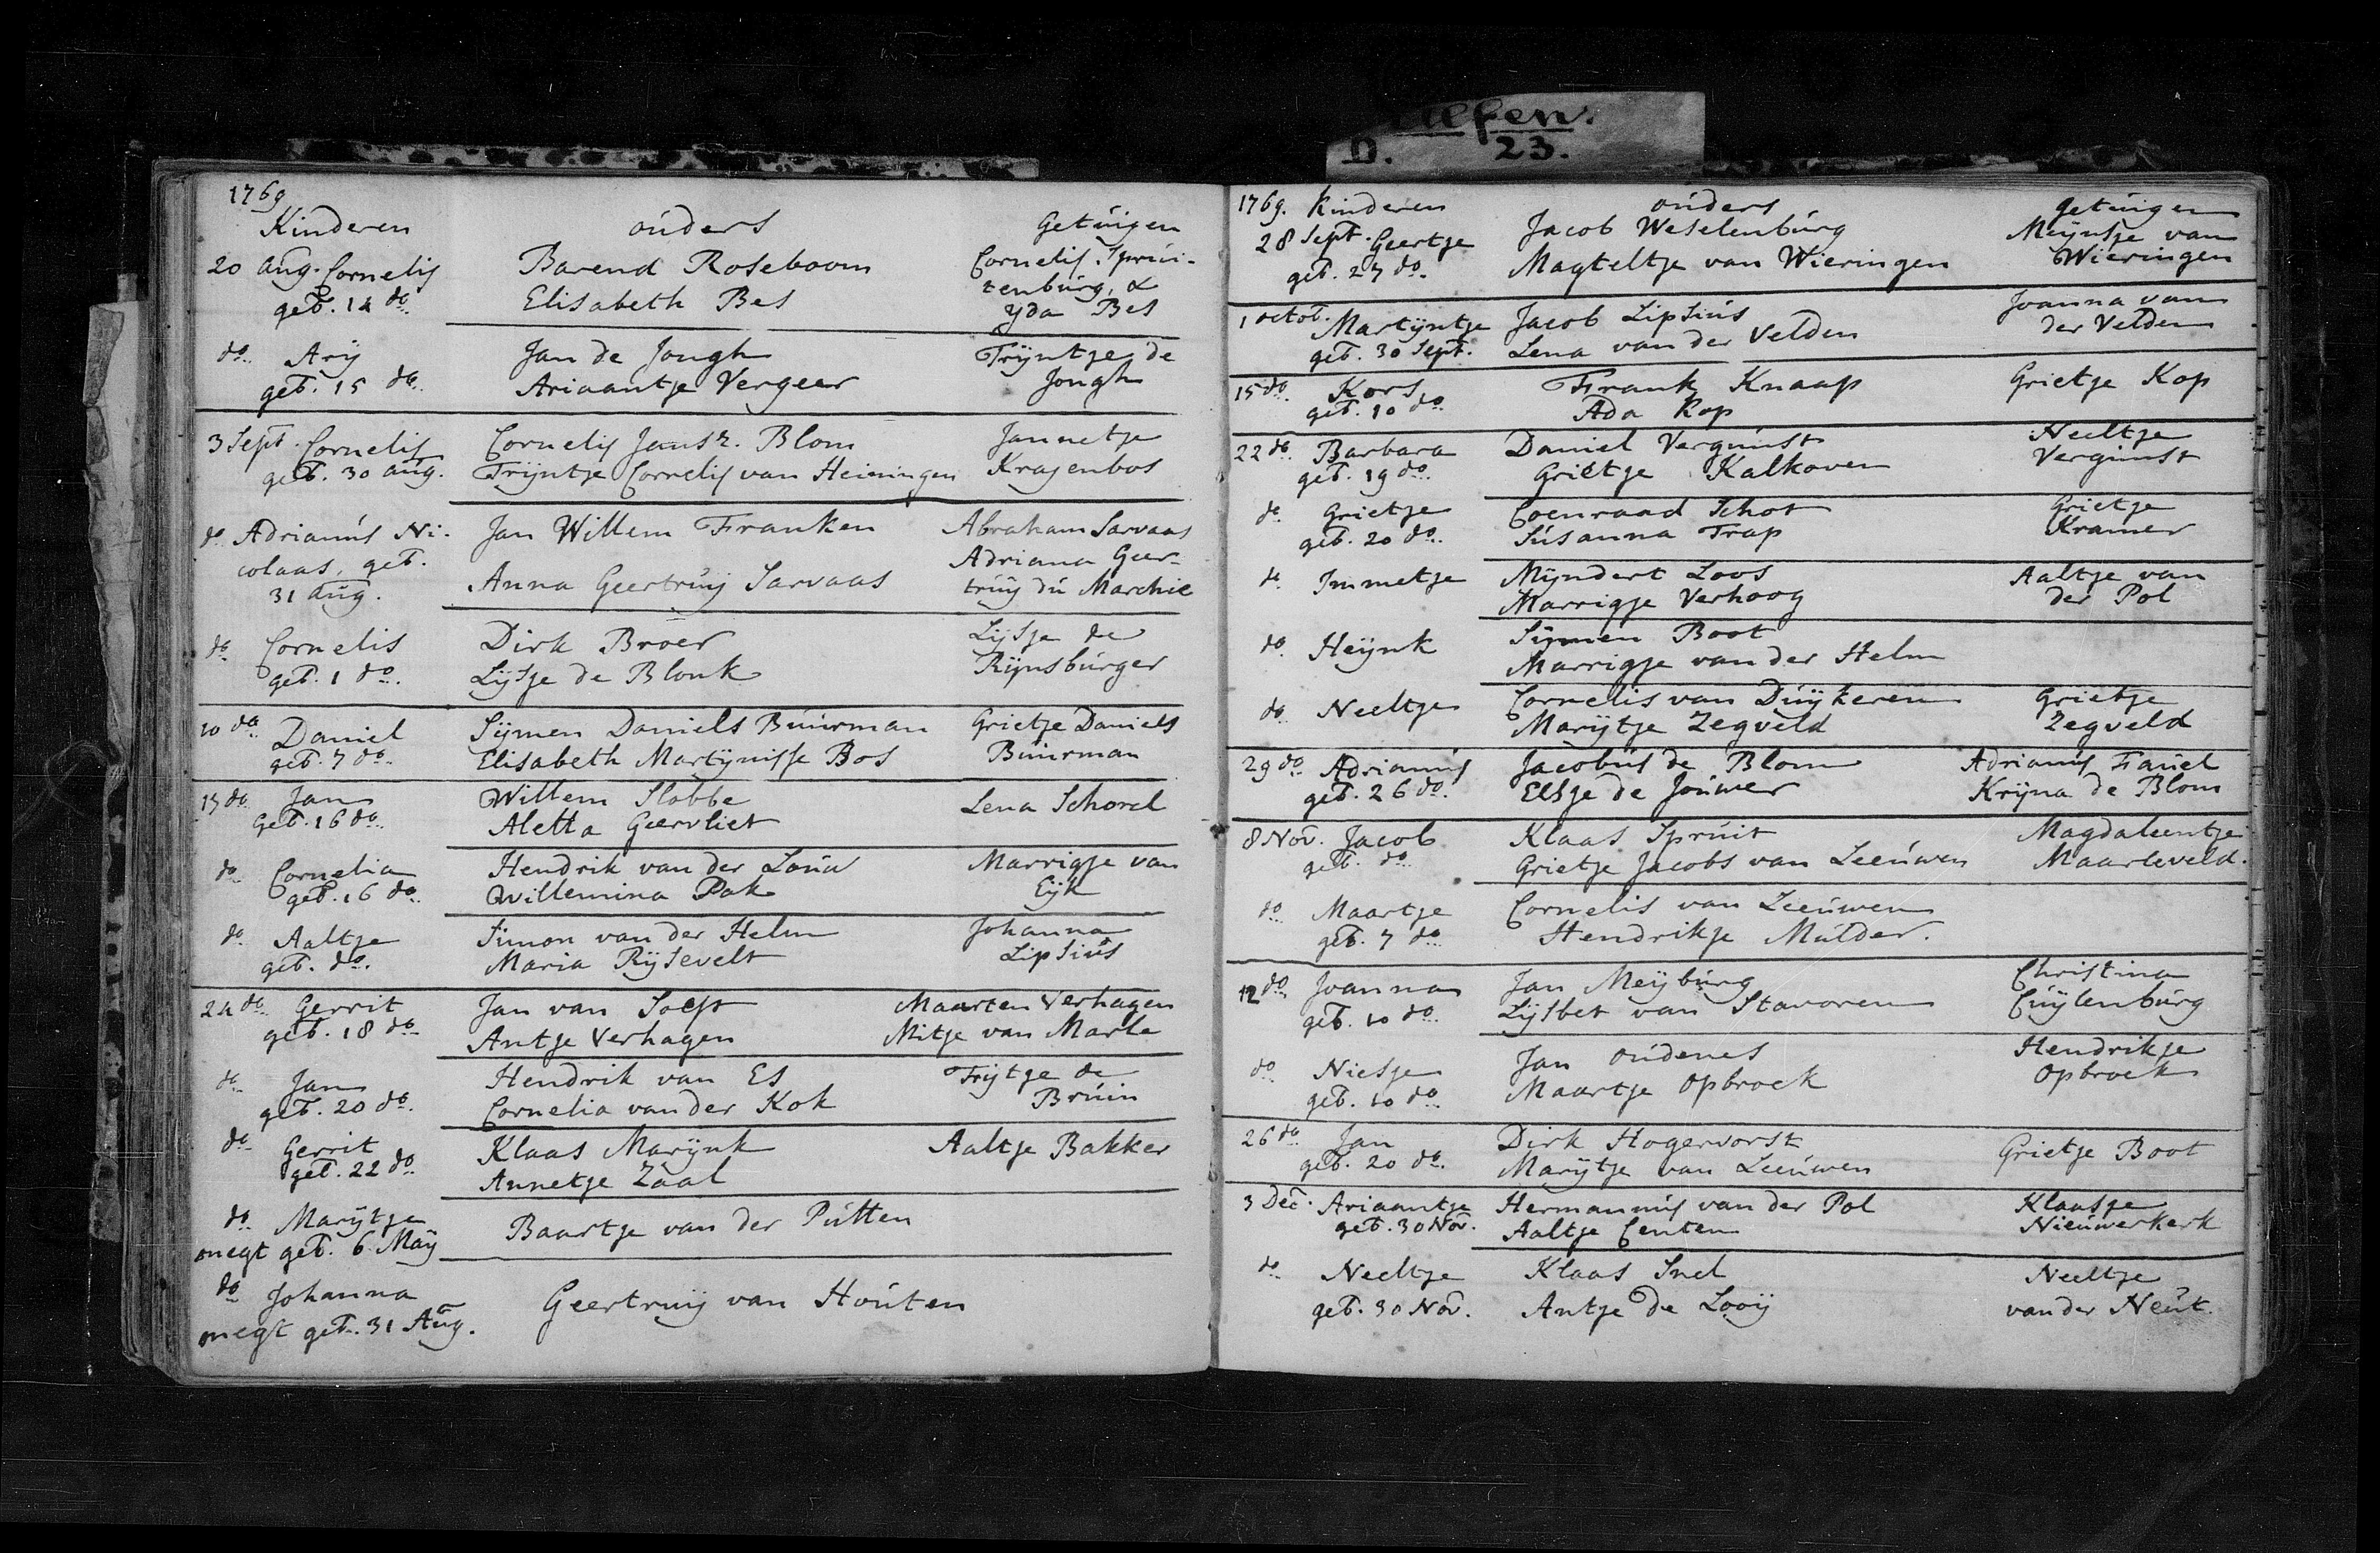 Alfen.
D. 23.
1769
Kinderen ouders Getuigen
20 Aug. Cornelis Barend Roseboom Cornelis Sprui-
geb. 14 do. Elisabeth Bes tenburg, &
Yda Bes
do. Arij Jan de Jongh Trijntje de
geb. 15 do. Ariaantje Vergeer Jongh
3 Sept. Cornelis Cornelis Jansz. Blom Jannetje
geb. 30 aug. Trijntje Cornelis van Heiningen Krajenbos
do Adrianus Ni- Jan Willem Franken Abraham Sarvaas
colaas, geb. Adriana Geer-
31 aug. Anna Geertruij Sarvaas truij du Marchie
do Cornelis Dirk Broer Lijsje de
geb. 1 do. Lijsje de Blonk Rijnsburger
10 do Daniel Sijmen Daniels Buurman Grietje Daniels
geb. 7 do. Elisabeth Martijnisse Bos Buurman
17 do Jan Willem Slobbe Lena Schorel
geb. 16 do. Aletta Geervliet
do Cornelia Hendrik van der Louw Marrigje van
geb. 16 do. Willemina Pak Eijk
do Aaltje Simon van der Helm Johanna
geb. do. Maria Rijsevelt Lipsius
24 do Gerrit Jan van Soest Maarten Verhagen
geb. 18 do Antje Verhagen Mitje van Marle
do Jan Hendrik van Es Trijtje de
geb. 20 do. Cornelia van der Kok Bruin
do Gerrit Klaas Marijnk Aaltje Bakker
geb. 22 do. Annetje Zaal
do Marijtje Baartje van der Putten
onegt geb. 6 Maij
do Johanna Geertruij van Houten
onegt geb. 31 Aug.
1769. Kinderen ouders getuigen
28 Sept. Geertje Jacob Weselenburg Meijnsje van
geb. 27 do. Magteltje van Wieringen Wieringen
1 octob. Martijntje Jacob Lipsius Joanna van
geb. 30 Sept. Lena van der Velden der Velden
15 do. Kors Frank Knaap Grietje Kop
geb. 10 do Ada Kop
22 do. Barbara Daniel Vergunst Neeltje
geb. 19 do. Grietje Kalkoven Vergunst
do Grietje Coenraad Schot Grietje
geb. 20 do. Susanna Trap Kramer
do Immetje Mijndert Loos Aaltje van
Marrigje Verhoog der Pol
do. Heijnk Sijmen Boot
Marrigje van der Helm
do Neeltje Cornelis van Duijkeren Grietje
Marijtje Zegveld Zegveld
29 do Adrianus Jacobus de Blom Adrianus Fauel
geb. 26 do. Elsje de Jouwer Krijna de Blom
8 Nov. Jacob Klaas Spruit Magdaleentje
geb. do. Grietje Jacobs van Leeuwen Maarleveld.
do Maartje Cornelis van Leeuwen
geb. 7 do Hendrikje Mulder.
12 do Joanna Jan Meijburg Christina
geb. 10 do. Lijsbet van Stavoren Cuijlenburg
do Niesje Jan oudenes Hendrikje
geb. 10 do Maartje Opbroek Opbroek
26 do Jan Dirk Hogervorst Grietje Boot
geb. 20 do. Marijtje van Leeuwen
3 Dec. Ariaantje Hermannus van der Pol Klaasje
geb. 30 Nov. Aaltje Centen Nieuwerkerk
do Neeltje Klaas Snel Neeltje
geb. 30 Nov. Antje de Looij van der Neut.